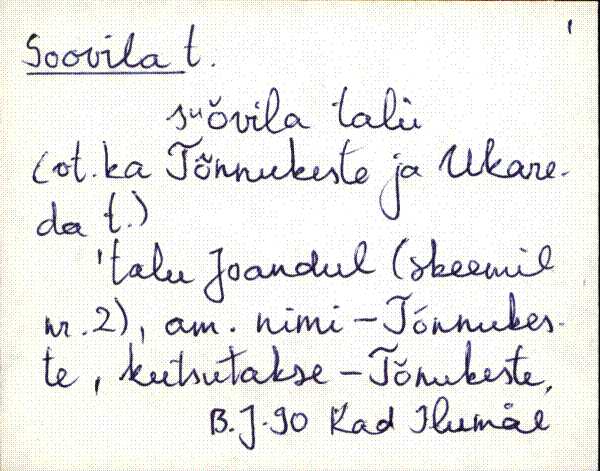 1
Soovila t.
sᵘŏvila talù
(vt. ka Tõnnukeste ja Ukare-
da t.)
'talu Joandul (skeemil
nr. 2), am. nimi – Tõnnukes-
te, kutsutakse – Tõnukeste,
B.J.90 Kad Ilumäe